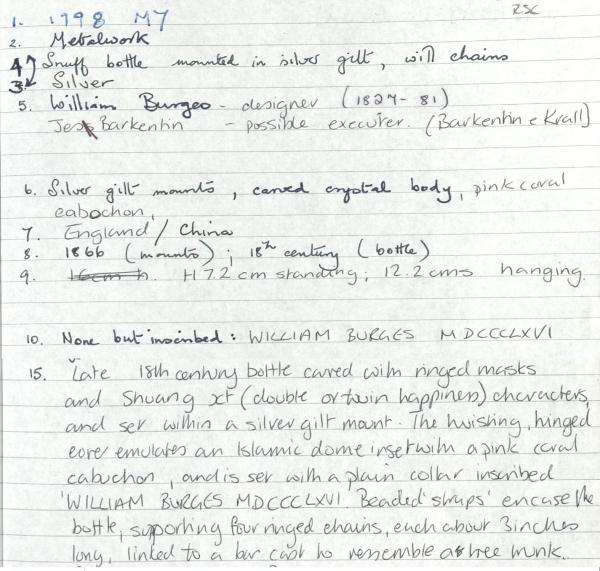 RSC
1. 1798 MY
2. Metalwork
4 Snuff bottle mounted in silver gilt, with chains
3. Silver
5. William Burges - designer (1827-81)
Jes Barkentin - possible executer. (Barkentin & Krall)
6. Silver gilt mounts, carved crystal body, pink coral
cabochon,
7. England / China
8. 1866 (mounts); 18th century (bottle)
9. H 7.2 cm standing; 12.2 cms hanging.
10. None but inscribed: WILLIAM BURGES MDCCCLXVI
15. Late 18th century bottle carved with ringed masks
and Shuang xi (double or twin happiness) characters,
and set within a silver gilt mount. The twisting, hinged
cover emulates an Islamic dome inset with a pink coral
cabuchon, and is set with a plain collar inscribed
'WILLIAM BURGES MDCCCLXVI. Beaded 'straps' encase the
bottle, supporting four ringed chains, each about 3 inches
long, linked to a bar cast to resemble a tree trunk.